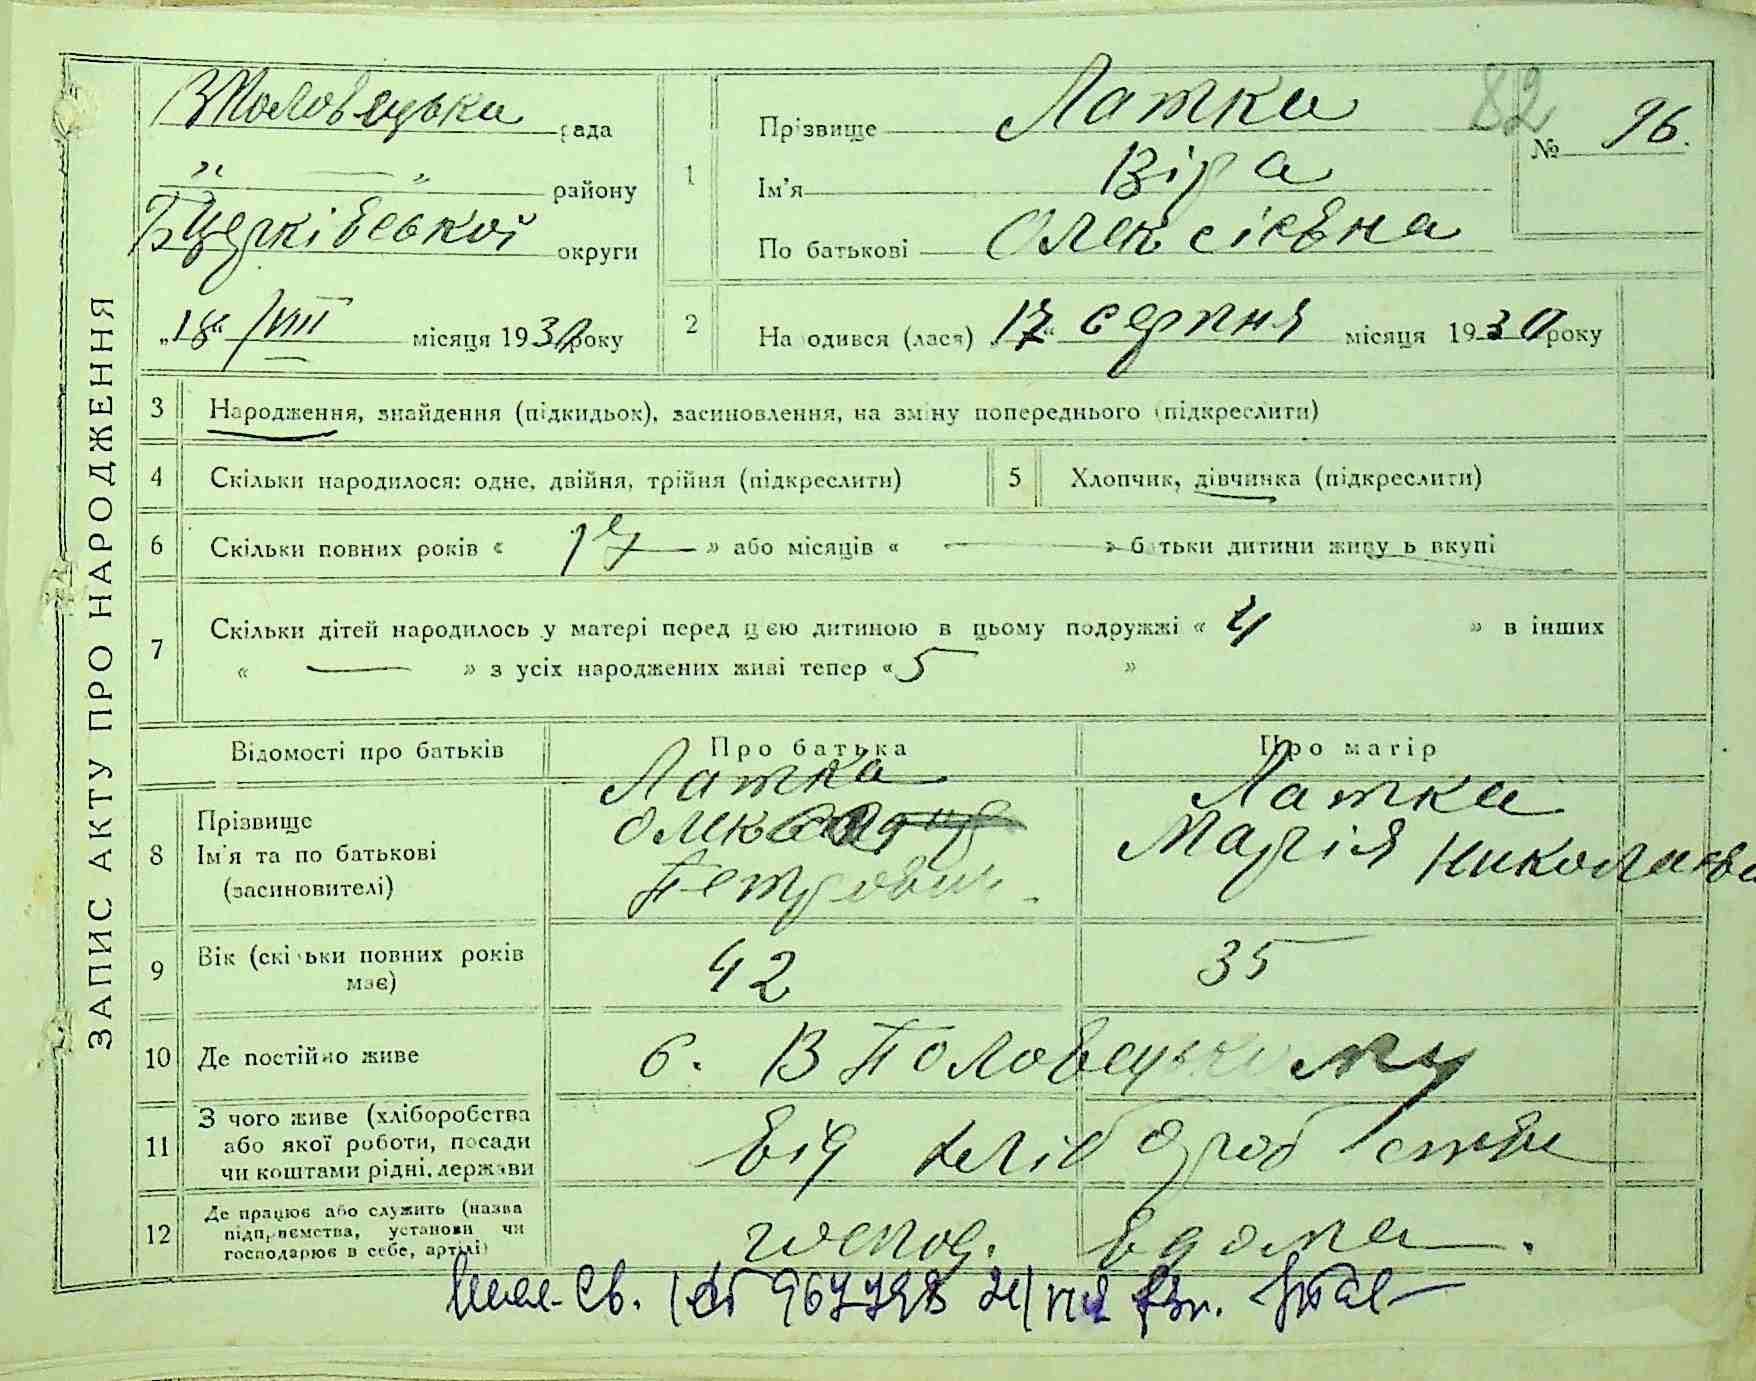 ЗАПИС АКТУ ПРО НАРОДЖЕННЯ
ВПоловецька рада
" — " району
БЦерківської округи
„18“ /VIII місяця 1930 року
82
№ 96.
1 Прізвище Латка
Ім'я Віра
По батькові Олексієвна
2 На одився (лася) „17“ серпня місяця 1930 року
3 Народження, знайдення (підкидьок), засиновлення, на зміну попереднього (підкреслити)
4 Скільки народилося: одне, двійня, трійня (підкреслити)
5 Хлопчик, дівчинка (підкреслити)
6 Скільки повних років « 17 — » або місяців « — » батьки дитини живуть вкупі
7 Скільки дітей народилось у матері перед цією дитиною в цьому подружжі « 4 » в інших
« — » з усіх народжених живі тепер « 5 »
Відомості про батьків Про батька Про матір
8 Прізвище Ім'я та по батькові (засиновителі)
Латка
Петрович.
Латка
Марія Николаєва
9 Вік (скільки повних років має) 42 35
10 Де постійно живе с. В Половецькому
11 З чого живе (хліборобства або якої роботи, посади чи коштами рідні, держави від хліборобства
12 Де працює або служить (назва підприємства, установи чи господарює в себе, артілі) господ. вдома.
Св. 967798